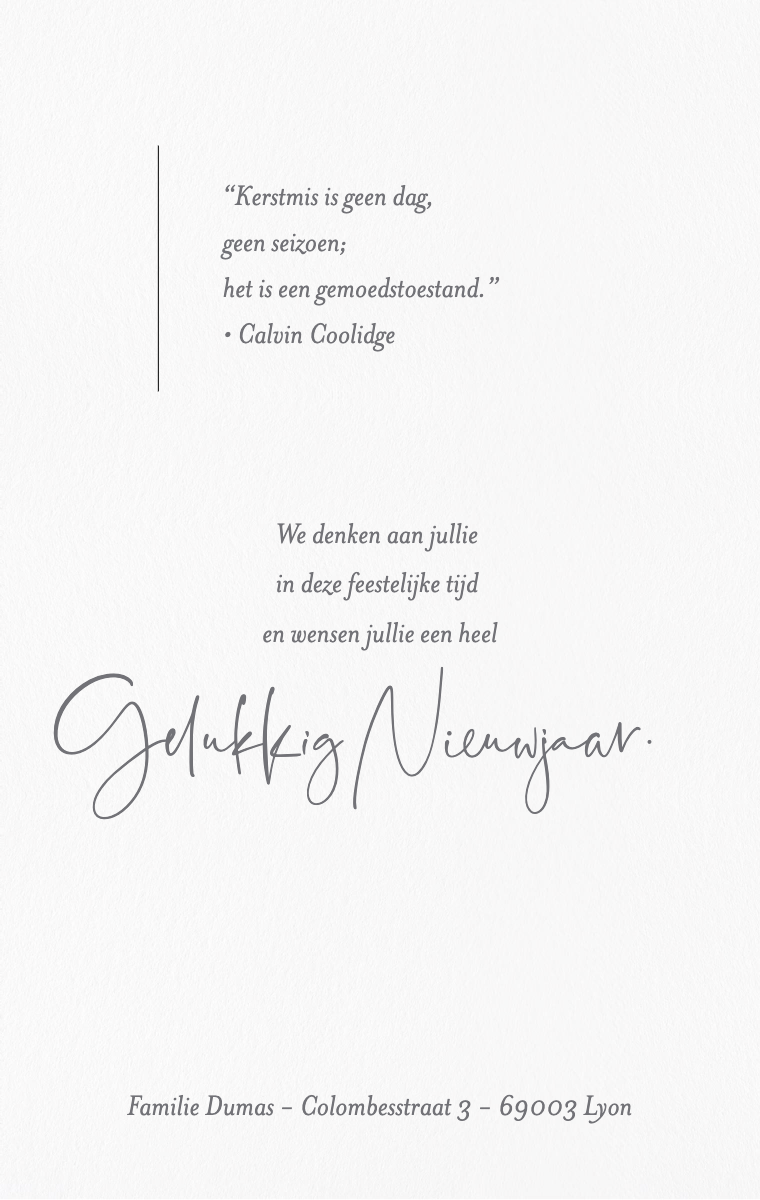 “Kerstmis is geen dag,
geen seizoen;
het is een gemoedstoestand.”
• Calvin Coolidge
We denken aan jullie
in deze feestelijke tijd
en wensen jullie een heel
Gelukkig Nieuwjaar.
Familie Dumas – Colombesstraat 3 – 69003 Lyon